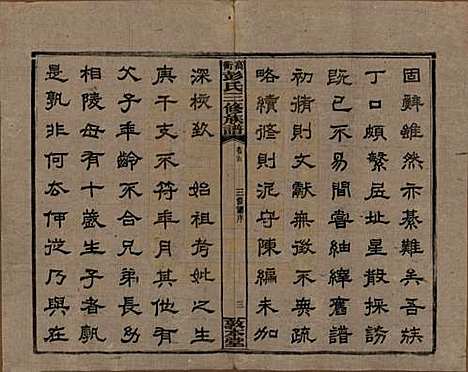 固辭雖然亦綦難矣吾族
丁口頗繁丘址星散採訪
既已不易間嘗紬繹舊譜
初脩則文獻無徵不無疏
略續修則泥守陳編未加
彭氏三修族譜
三修譜序
三
敦本堂
深核欵　始祖考妣之生
庚干支不符年月其他有
父子年齡不合兄弟長幼
相陵母有十歲生子者孰
是孰非何去何從乃與在